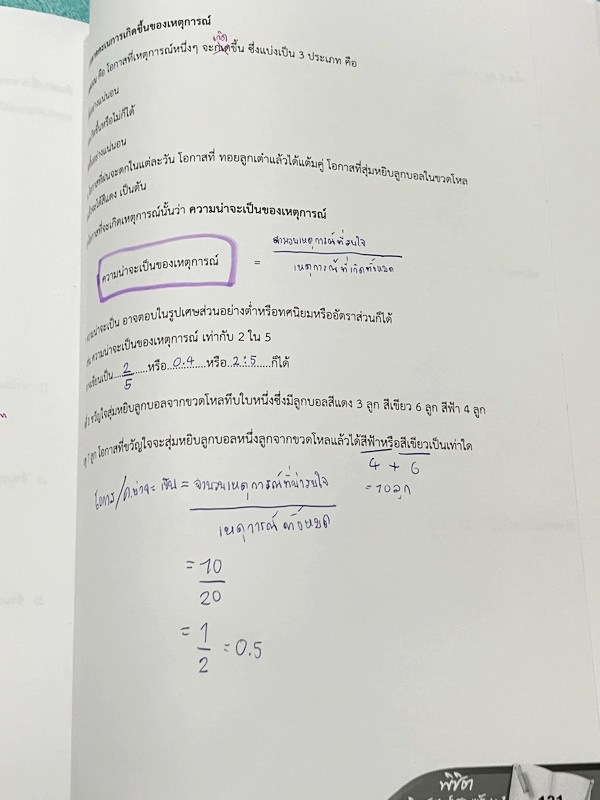 การเกิดขึ้นของเหตุการณ์
คือ โอกาสที่เหตุการณ์หนึ่งๆ จะเกิดขึ้น ซึ่งแบ่งเป็น 3 ประเภท คือ
อย่างแน่นอน
เกิดขึ้นหรือไม่ก็ได้
อย่างแน่นอน
ฝนจะตกในแต่ละวัน โอกาสที่ ทอยลูกเต๋าแล้วได้แต้มคู่ โอกาสที่สุ่มหยิบลูกบอลในขวดโหล
จะได้สีแดง เป็นต้น
ที่จะเกิดเหตุการณ์นั้นว่า ความน่าจะเป็นของเหตุการณ์
ความน่าจะเป็นของเหตุการณ์ = จำนวนเหตุการณ์ที่สนใจ
เหตุการณ์ที่เกิดทั้งหมด
ความน่าจะเป็น อาจตอบในรูปเศษส่วนอย่างต่ำหรือทศนิยมหรืออัตราส่วนก็ได้
ความน่าจะเป็นของเหตุการณ์ เท่ากับ 2 ใน 5
เขียนเป็น 2/5 หรือ 0.4 หรือ 2:5 ก็ได้
ขวัญใจสุ่มหยิบลูกบอลจากขวดโหลทึบใบหนึ่งซึ่งมีลูกบอลสีแดง 3 ลูก สีเขียว 6 ลูก สีฟ้า 4 ลูก
ลูก โอกาสที่ขวัญใจจะสุ่มหยิบลูกบอลหนึ่งลูกจากขวดโหลแล้วได้สีฟ้าหรือสีเขียวเป็นเท่าใด
4 + 6
= 10 ลูก
โอกาส/ค.น่าจะเป็น = จำนวนเหตุการณ์ที่น่าสนใจ
เหตุการณ์ทั้งหมด
= 10
20
= 1
2 = 0.5
พิชิต
131